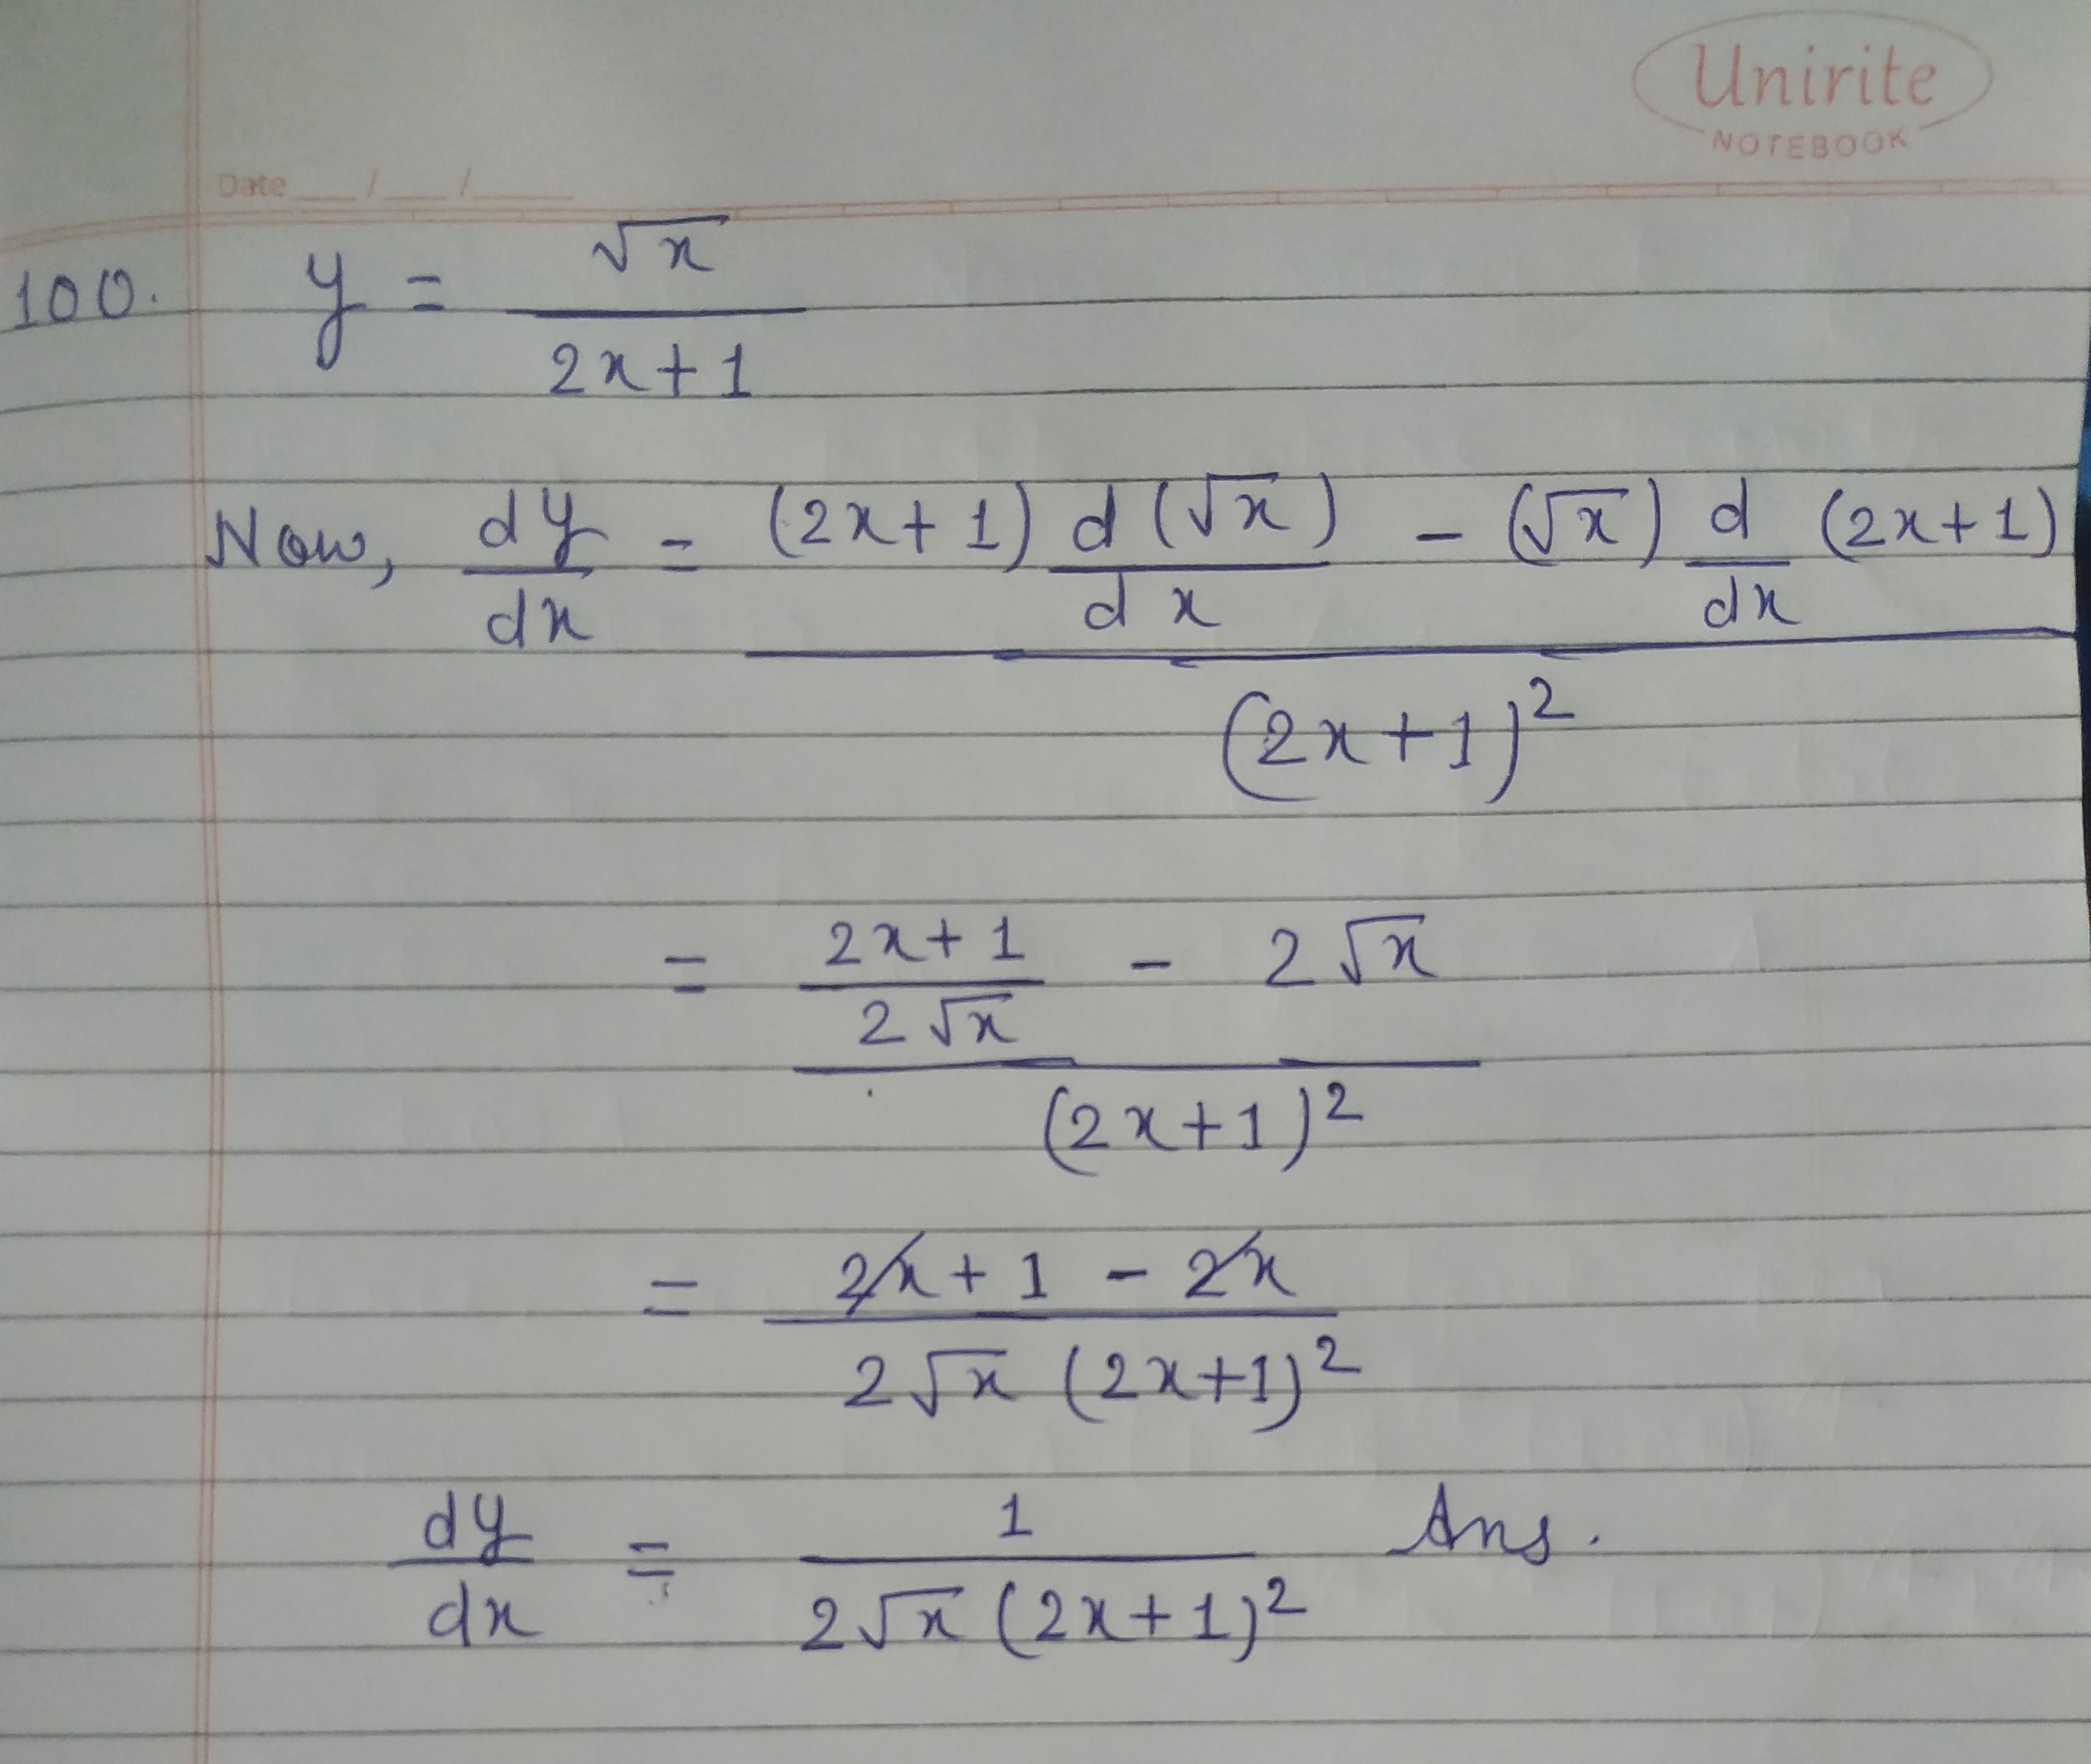 Unirite
NOTEBOOK
Date __/__/____
100. y = √x / 2x+1
Now, dy/dx = (2x+1) d(√x)/dx - (√x) d/dx (2x+1) / (2x+1)²
= 2x+1/2√x - 2√x / (2x+1)²
= 2x+1-2x / 2√x (2x+1)²
dy/dx = 1 / 2√x (2x+1)² Ans.